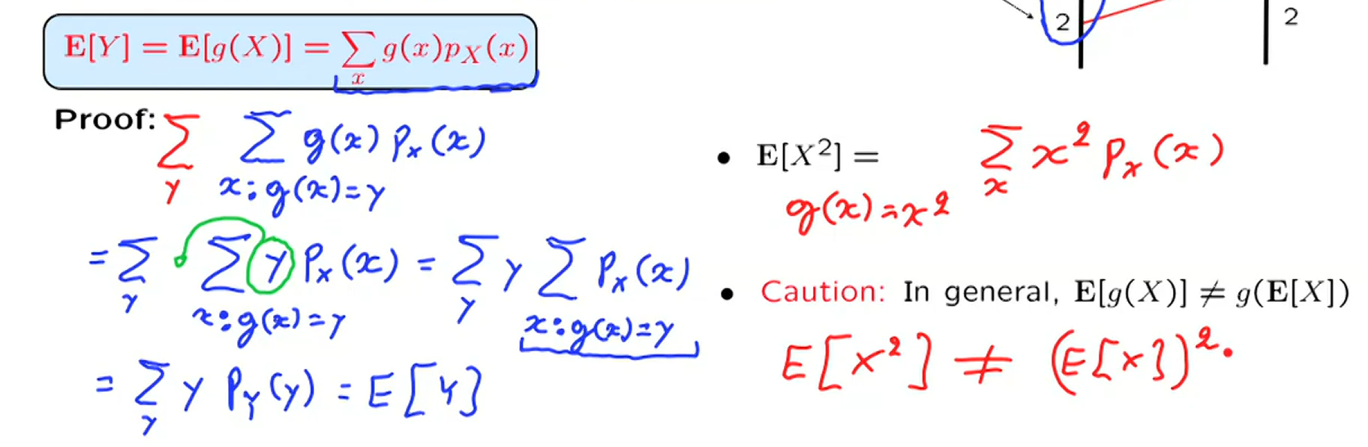 E[Y] = E[g(X)] = ∑_x g(x)p_X(x)
Proof: ∑_y ∑_{x:g(x)=y} g(x) p_x(x)
= ∑_y ∑_{x:g(x)=y} y p_x(x) = ∑_y y ∑_{x:g(x)=y} p_x(x)
= ∑_y y p_Y(y) = E[Y]
2
2
• E[X²] = ∑_x x² p_x(x)
g(x) = x²
• Caution: In general, E[g(X)] ≠ g(E[X])
E[X²] ≠ (E[X])².